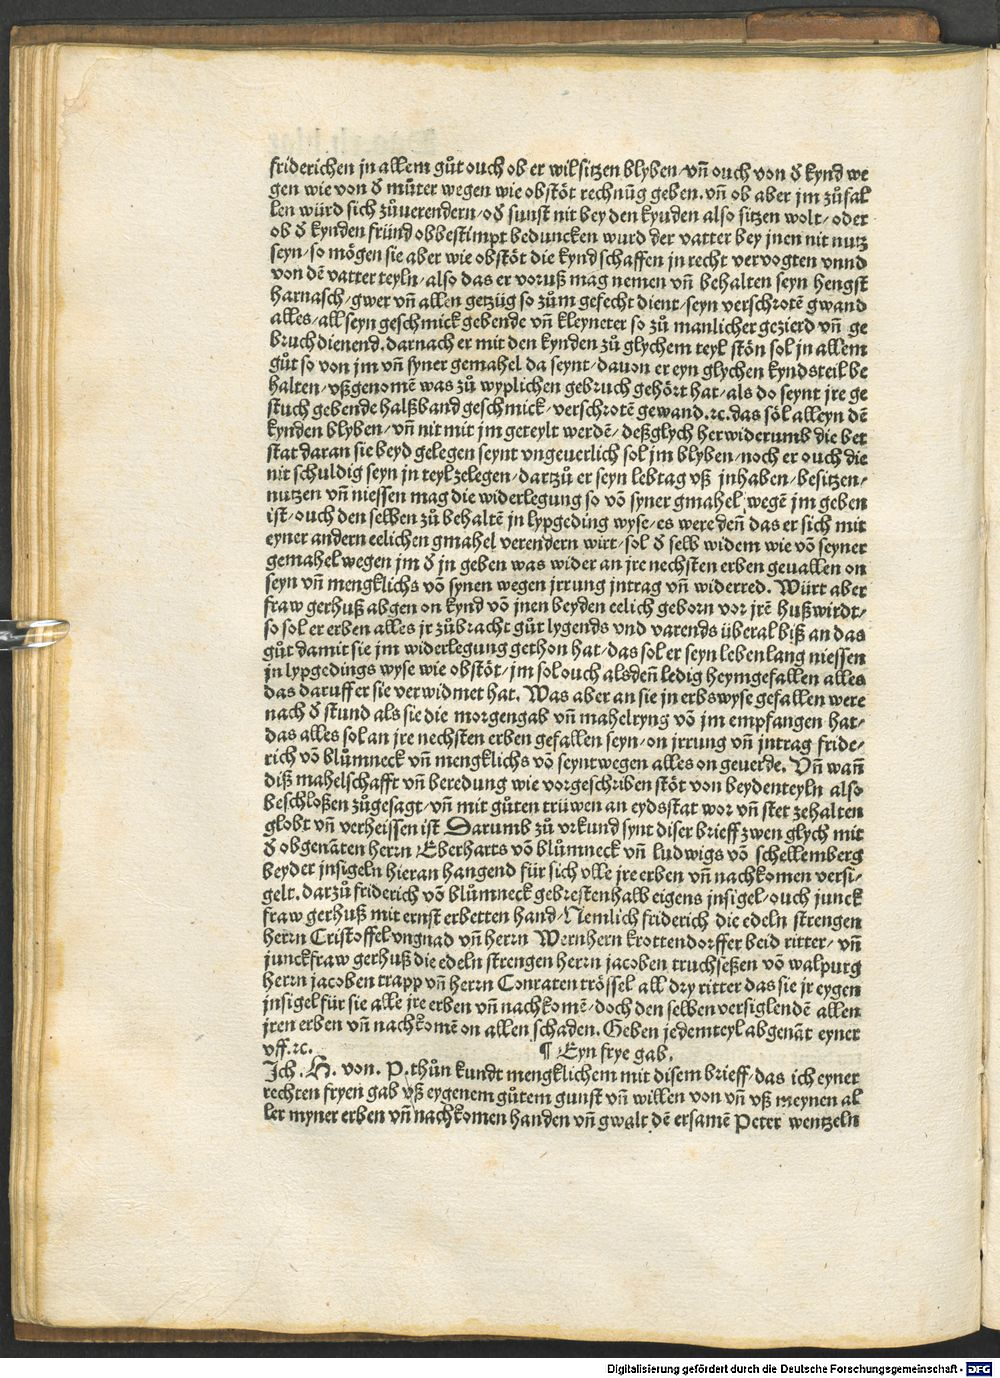 friderichen jn allem gůt ouch ob er wil sitzen blyben/ vn̄ ouch von d̄ kynd we
gen wie von d̄ můter wegen wie obstöt rechnūg geben. vn̄ ob aber jm zůfal
len würd sich zůuerendern/ od̄ sunst nit bey den kynden also sitzen wolt/ oder
ob d̄ kynden fründ obbestimpt beduncken wurd der vatter bey jnen nit nutz
seyn/ so mögen sie aber wie obstöt die kynd schaffen jn recht vervogten vnnd
von dē vatter teyln/ also das er voruß mag nemen vn̄ behalten seyn hengst
harnasch/ gwer vn̄ allen getzüg so zům gefecht dient/ seyn verschrotē gwand
alles/ all seyn geschmick gebende vn̄ kleyneter so zů manlicher gezierd vn̄ ge
bruch dienend. darnach er mit den kynden zů glychem teyl stön sol jn allem
gůt so von jm vn̄ syner gemahel da seynt/ dauon er eyn glychen kyndsteil be
halten/ vßgenomē was zů wyplichen gebruch gehört hat/ als do seynt jre ge
stuch gebende halßband geschmick/ verschrotē gewand.⁊c. das söl alleyn dē
kynden blyben/ vn̄ nit mit jm geteylt werdē/ deßglych herwiderumb die bet
stat daran sie beyd gelegen seynt vngeuerlich sol jm blyben/ noch er ouch die
nit schuldig seyn jn teyl zelegen/ dartzů er seyn lebtag vß jnhaben/ besitzen/
nutzen vn̄ niessen mag die widerlegung so vō syner gmahel wegē jm geben
ist/ ouch den selben zů behaltē jn lypgeding wyse/ es were den̄ das er sich mit
eyner andern eelichen gmahel verendern wirt/ sol d̄ selb widem wie vō seyner
gemahel wegen jm d̄ jn geben was wider an jre nechsten erben geuallen on
seyn vn̄ mengklichs vō synen wegen jrrung jntrag vn̄ widerred. Würt aber
fraw gerhuß abgen on kynd vō jnen beyden eelich geborn vor jrē hußwirdt/
so sol er erben alles jr zůbracht gůt lygends vnd varends überal biß an das
gůt damit sie jm widerlegung gethon hat/ das sol er seyn lebenlang niessen
jn lypgedings wyse wie obstöt/ jm sol ouch alsden̄ ledig heymgefallen alles
das daruff er sie verwidmet hat. Was aber an sie jn erbswyse gefallen were
nach d̄ stund als sie die morgengab vn̄ mahelryng vō jm empfangen hat/
das alles sol an jre nechsten erben gefallen seyn/ on jrrung vn̄ jntrag fride/
rich vō blůmneck vn̄ mengklichs vō seynt wegen alles on geuerde. Vn̄ wan̄
diß mahelschafft vn̄ beredung wie vorgeschriben stöt von beyden teyln also
beschloßen zůgesagt/ vn̄ mit gůten trüwen an eydsstat wor vn̄ stet zehalten
globt vn̄ verheissen ist Darumb zů vrkund synt diser brieff zwen glych mit
d̄ obgenāten herrn Eberharts vō blůmneck vn̄ ludwigs vō schellemberg
beyder jnsigeln hieran hangend für sich vlle jre erben vn̄ nachkomen versi/
gelt. darzů friderich vō blůmneck gebrestenhalb eigens jnsigel/ ouch junck
fraw gerhuß mit ernst erbetten hand/ Nemlich friderich die edeln strengen
herrn Cristoffel vngnad vn̄ herrn Wernhern krottendorffer beid ritter/ vn̄
junckfraw gerhuß die edeln strengen herrn jacoben truchseßen vō walpurg
herrn jacoben trapp vn̄ herrn Conraten trössel all dry ritter das sie jr eygen
jnsigel für sie alle jre erben vn̄ nachkomē/ doch den selben versiglendē allen
jren erben vn̄ nachkomē on allen schaden. Geben jedem teyl abgenāt eyner
vff.⁊c. ¶ Eyn frye gab.
Ich. H. von. P. thůn kundt mengklichem mit disem brieff/ das ich eyner
rechten fryen gab vß eygenem gůtem gunst vn̄ willen von vn̄ vß meynen al
ler myner erben vn̄ nachkomen handen vn̄ gwalt dē ersamē Peter wentzeln
Digitalisierung gefördert durch die Deutsche Forschungsgemeinschaft - DFG